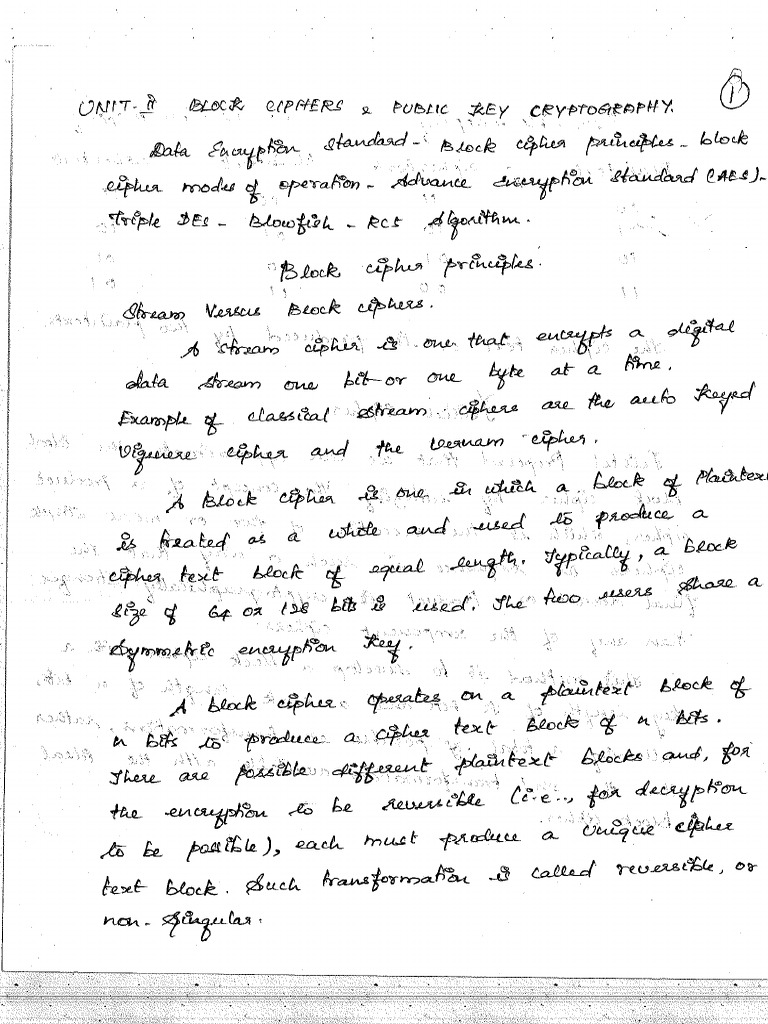 1
UNIT-II BLOCK CIPHERS & PUBLIC KEY CRYPTOGRAPHY.
Data Encryption Standard - Block cipher principles - block
cipher modes of operation - Advance encryption standard (AES) -
Triple DES - Blowfish - RC5 Algorithm.
Block cipher principles.
Stream Versus Block ciphers.
A stream cipher is one that encrypts a digital
data stream one bit or one byte at a time.
Example of classical stream ciphers are the auto keyed
Vigenere cipher and the vernam cipher.
A Block cipher is one in which a block of Plaintext
is treated as a whole and used to produce a
cipher text block of equal length. Typically, a block
size of 64 or 128 bits is used. The two users share a
symmetric encryption key.
A block cipher operates on a plaintext block of
n bits to produce a cipher text block of n bits.
There are possible different plaintext blocks and, for
the encryption to be reversible (i.e.., for decryption
to be possible), each must produce a unique cipher
text block. Such transformation is called reversible, or
non-singular.